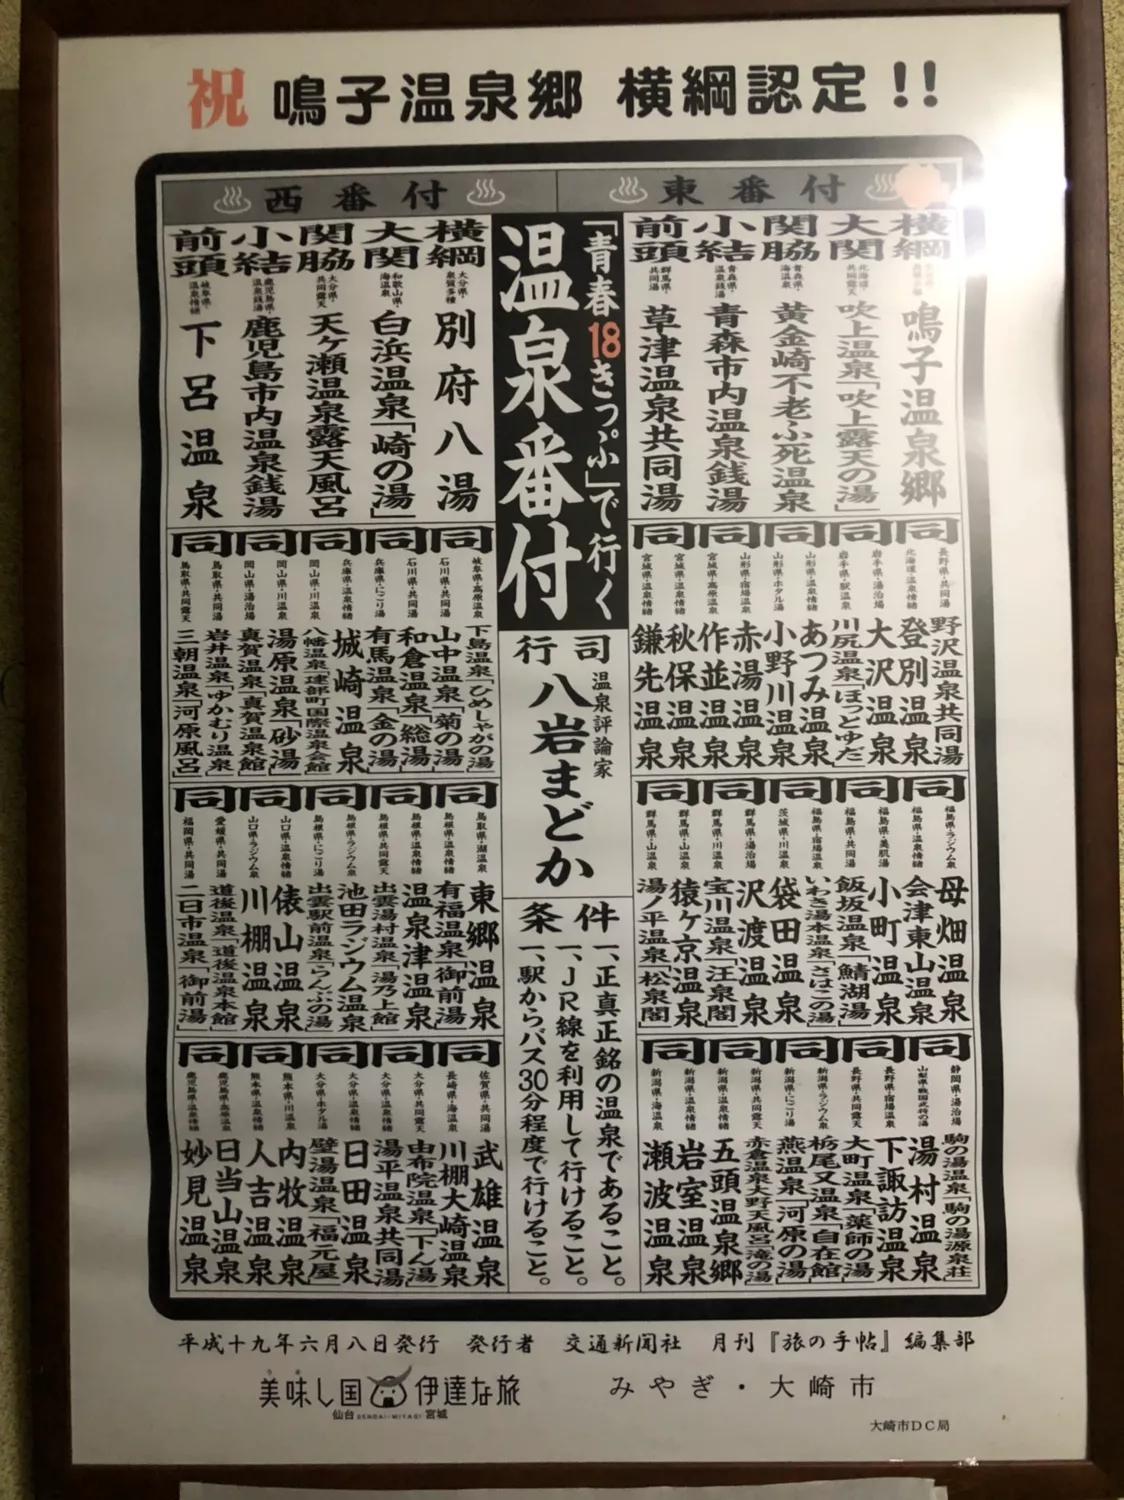 祝 鳴子温泉郷 横綱認定!!
東番付
西番付
「青春18きっぷ」で行く
温泉番付
行司
温泉評論家
八岩まどか
条件
一、正真正銘の温泉であること。
一、JR線を利用して行けること。
一、駅からバス30分程度で行けること。
横綱
鳴子温泉郷
大関
北海道・共同露天
吹上温泉「吹上露天の湯」
関脇
青森県・海温泉
黄金崎不老ふ死温泉
小結
青森県・温泉銭湯
青森市内温泉銭湯
前頭
群馬県・共同湯
草津温泉共同湯
同
同
同
同
同
長野県・共同湯
野沢温泉共同湯
北海道・温泉情緒
登別温泉
岩手県・湯治場
大沢温泉
岩手県・駅温泉
川尻温泉「ほっとゆだ」
山形県・温泉情緒
あつみ温泉
山形県・ホタル湯
小野川温泉
山形県・宿場温泉
赤湯温泉
宮城県・高原温泉
作並温泉
宮城県・温泉情緒
秋保温泉
宮城県・温泉情緒
鎌先温泉
同
同
同
同
同
福島県・ラジウム泉
母畑温泉
福島県・温泉情緒
会津東山温泉
福島県・美肌湯
小町温泉
福島県・共同湯
飯坂温泉「鯖湖湯」
福島県・宿場温泉
いわき湯本温泉「さはこの湯」
茨城県・川温泉
袋田温泉
群馬県・湯治場
沢渡温泉
群馬県・川温泉
宝川温泉「汪泉閣」
群馬県・山温泉
猿ケ京温泉
群馬県・山温泉
湯ノ平温泉「松泉閣」
同
同
同
同
同
静岡県・湯治場
駒の湯温泉「駒の湯源泉荘」
山梨県・戦国武将の湯
湯村温泉
長野県・宿場温泉
下諏訪温泉
長野県・共同露天
大町温泉「薬師の湯」
新潟県・ラジウム泉
栃尾又温泉「自在館」
新潟県・にごり湯
燕温泉「河原の湯」
新潟県・共同露天
赤倉温泉大野天風呂「滝の湯」
新潟県・温泉情緒
五頭温泉郷
新潟県・温泉情緒
岩室温泉
新潟県・海温泉
瀬波温泉
横綱
大分県・泉質多種
別府八湯
大関
和歌山県・海温泉
白浜温泉「崎の湯」
関脇
大分県・共同露天
天ヶ瀬温泉露天風呂
小結
鹿児島県・温泉銭湯
鹿児島市内温泉銭湯
前頭
岐阜県・温泉情緒
下呂温泉
同
同
同
同
同
岐阜県・高原温泉
下島温泉「ひめしゃがの湯」
石川県・共同湯
山中温泉「菊の湯」
石川県・共同湯
和倉温泉「総湯」
兵庫県・にごり湯
有馬温泉「金の湯」
兵庫県・温泉情緒
城崎温泉
岡山県・川温泉
八幡温泉「建部町国際温泉会館」
岡山県・川温泉
湯原温泉「砂湯」
岡山県・湯治場
真賀温泉「真賀温泉館」
鳥取県・共同湯
岩井温泉「ゆかむり温泉」
鳥取県・共同露天
三朝温泉「河原風呂」
同
同
同
同
同
鳥取県・湖温泉
東郷温泉
島根県・共同湯
有福温泉「御前湯」
島根県・温泉情緒
温泉津温泉
島根県・共同露天
出雲湯村温泉「湯乃上館」
島根県・ラジウム泉
池田ラジウム温泉
島根県・にごり湯
出雲駅前温泉「らんぷの湯」
山口県・温泉情緒
俵山温泉
山口県・ラジウム泉
川棚温泉
愛媛県・共同湯
道後温泉「道後温泉本館」
福岡県・共同湯
二日市温泉「御前湯」
同
同
同
同
同
佐賀県・共同湯
武雄温泉
長崎県・海温泉
川棚大崎温泉
大分県・共同露天
由布院温泉「下ん湯」
大分県・温泉情緒
湯平温泉共同湯
大分県・温泉情緒
日田温泉
大分県・ホタル湯
壁湯温泉「福元屋」
熊本県・川温泉
内牧温泉
熊本県・温泉情緒
人吉温泉
鹿児島県・高原温泉
日当山温泉
鹿児島県・温泉情緒
妙見温泉
平成十九年六月八日発行 発行者 交通新聞社 月刊『旅の手帖』編集部
美味し国 伊達な旅
仙台 SENDAI・MIYAGI 宮城
みやぎ・大崎市
大崎市DC局